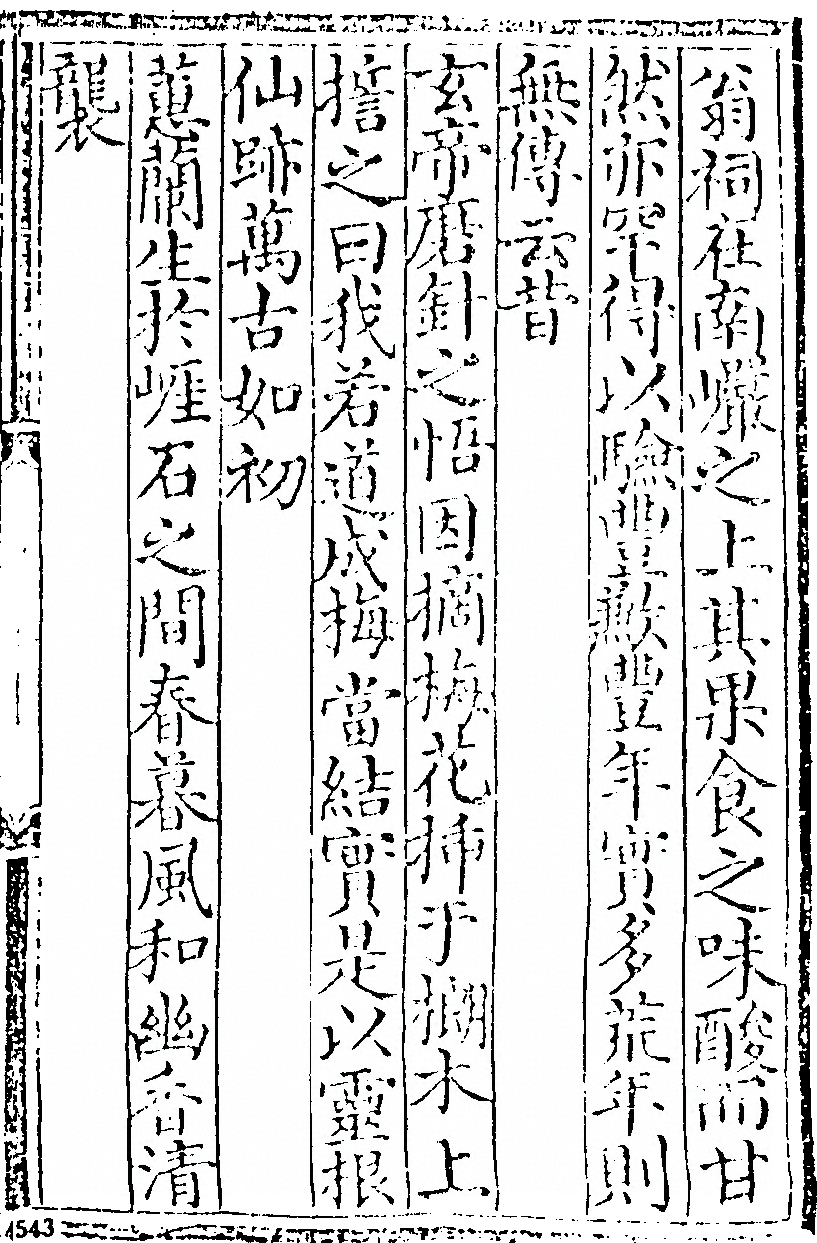 翁祠在南巖之上其果食之味酸而甘
然亦罕得以驗豐歉豐年實多荒年則
無傳云昔
玄帝磨針之悟因摘梅花揷于榔木上
誓之曰我若道成梅當結實是以靈根
仙跡萬古如初
蕙蘭生於崕石之間春暮風和幽香清
襲
4543